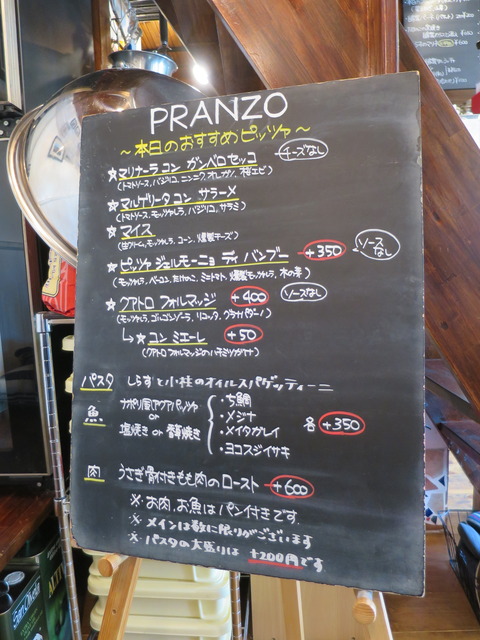 PRANZO
～本日のおすすめピッツァ～
☆マリナーラ コン ガンベロセッコ チーズなし
(トマトソース、バジリコ、ニンニク、オレガノ、桜エビ)
☆マルゲリータ コン サラーメ
(トマトソース、モッツァレラ、バジリコ、サラミ)
☆マイス
(生クリーム、モッツァレラ、コーン、燻製チーズ)
☆ピッツァ ジェルモーニョ ディ バンブー +350 ソースなし
(モッツァレラ、ベーコン、たけのこ、ミニトマト、燻製モッツァレラ、木の芽)
☆クアトロ フォルマッジ +400 ソースなし
(モッツァレラ、ゴルゴンゾーラ、リコッタ、グラナパダーノ)
↳☆コン ミエーレ +50
(クアトロフォルマッジのハチミツがけ)
パスタ しらすと小柱のオイルスパゲッティーニ
魚 ナポリ風アクアパッツァ
or
塩焼き or 香草焼き
・ち鯛
・メジナ
・メイタガレイ
・ヨコスジイサキ
各 +350
肉 うさぎ骨付きもも肉のロースト +600
※お肉、お魚はパン付きです。
※メインは数に限りがございます
※パスタの大盛りは +200円です